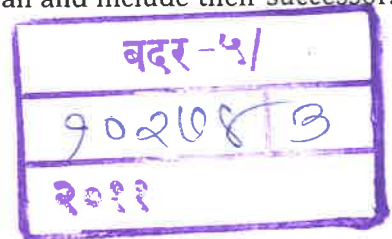 an and include their successor
बदर-५/
१०२७४ ३
२०११